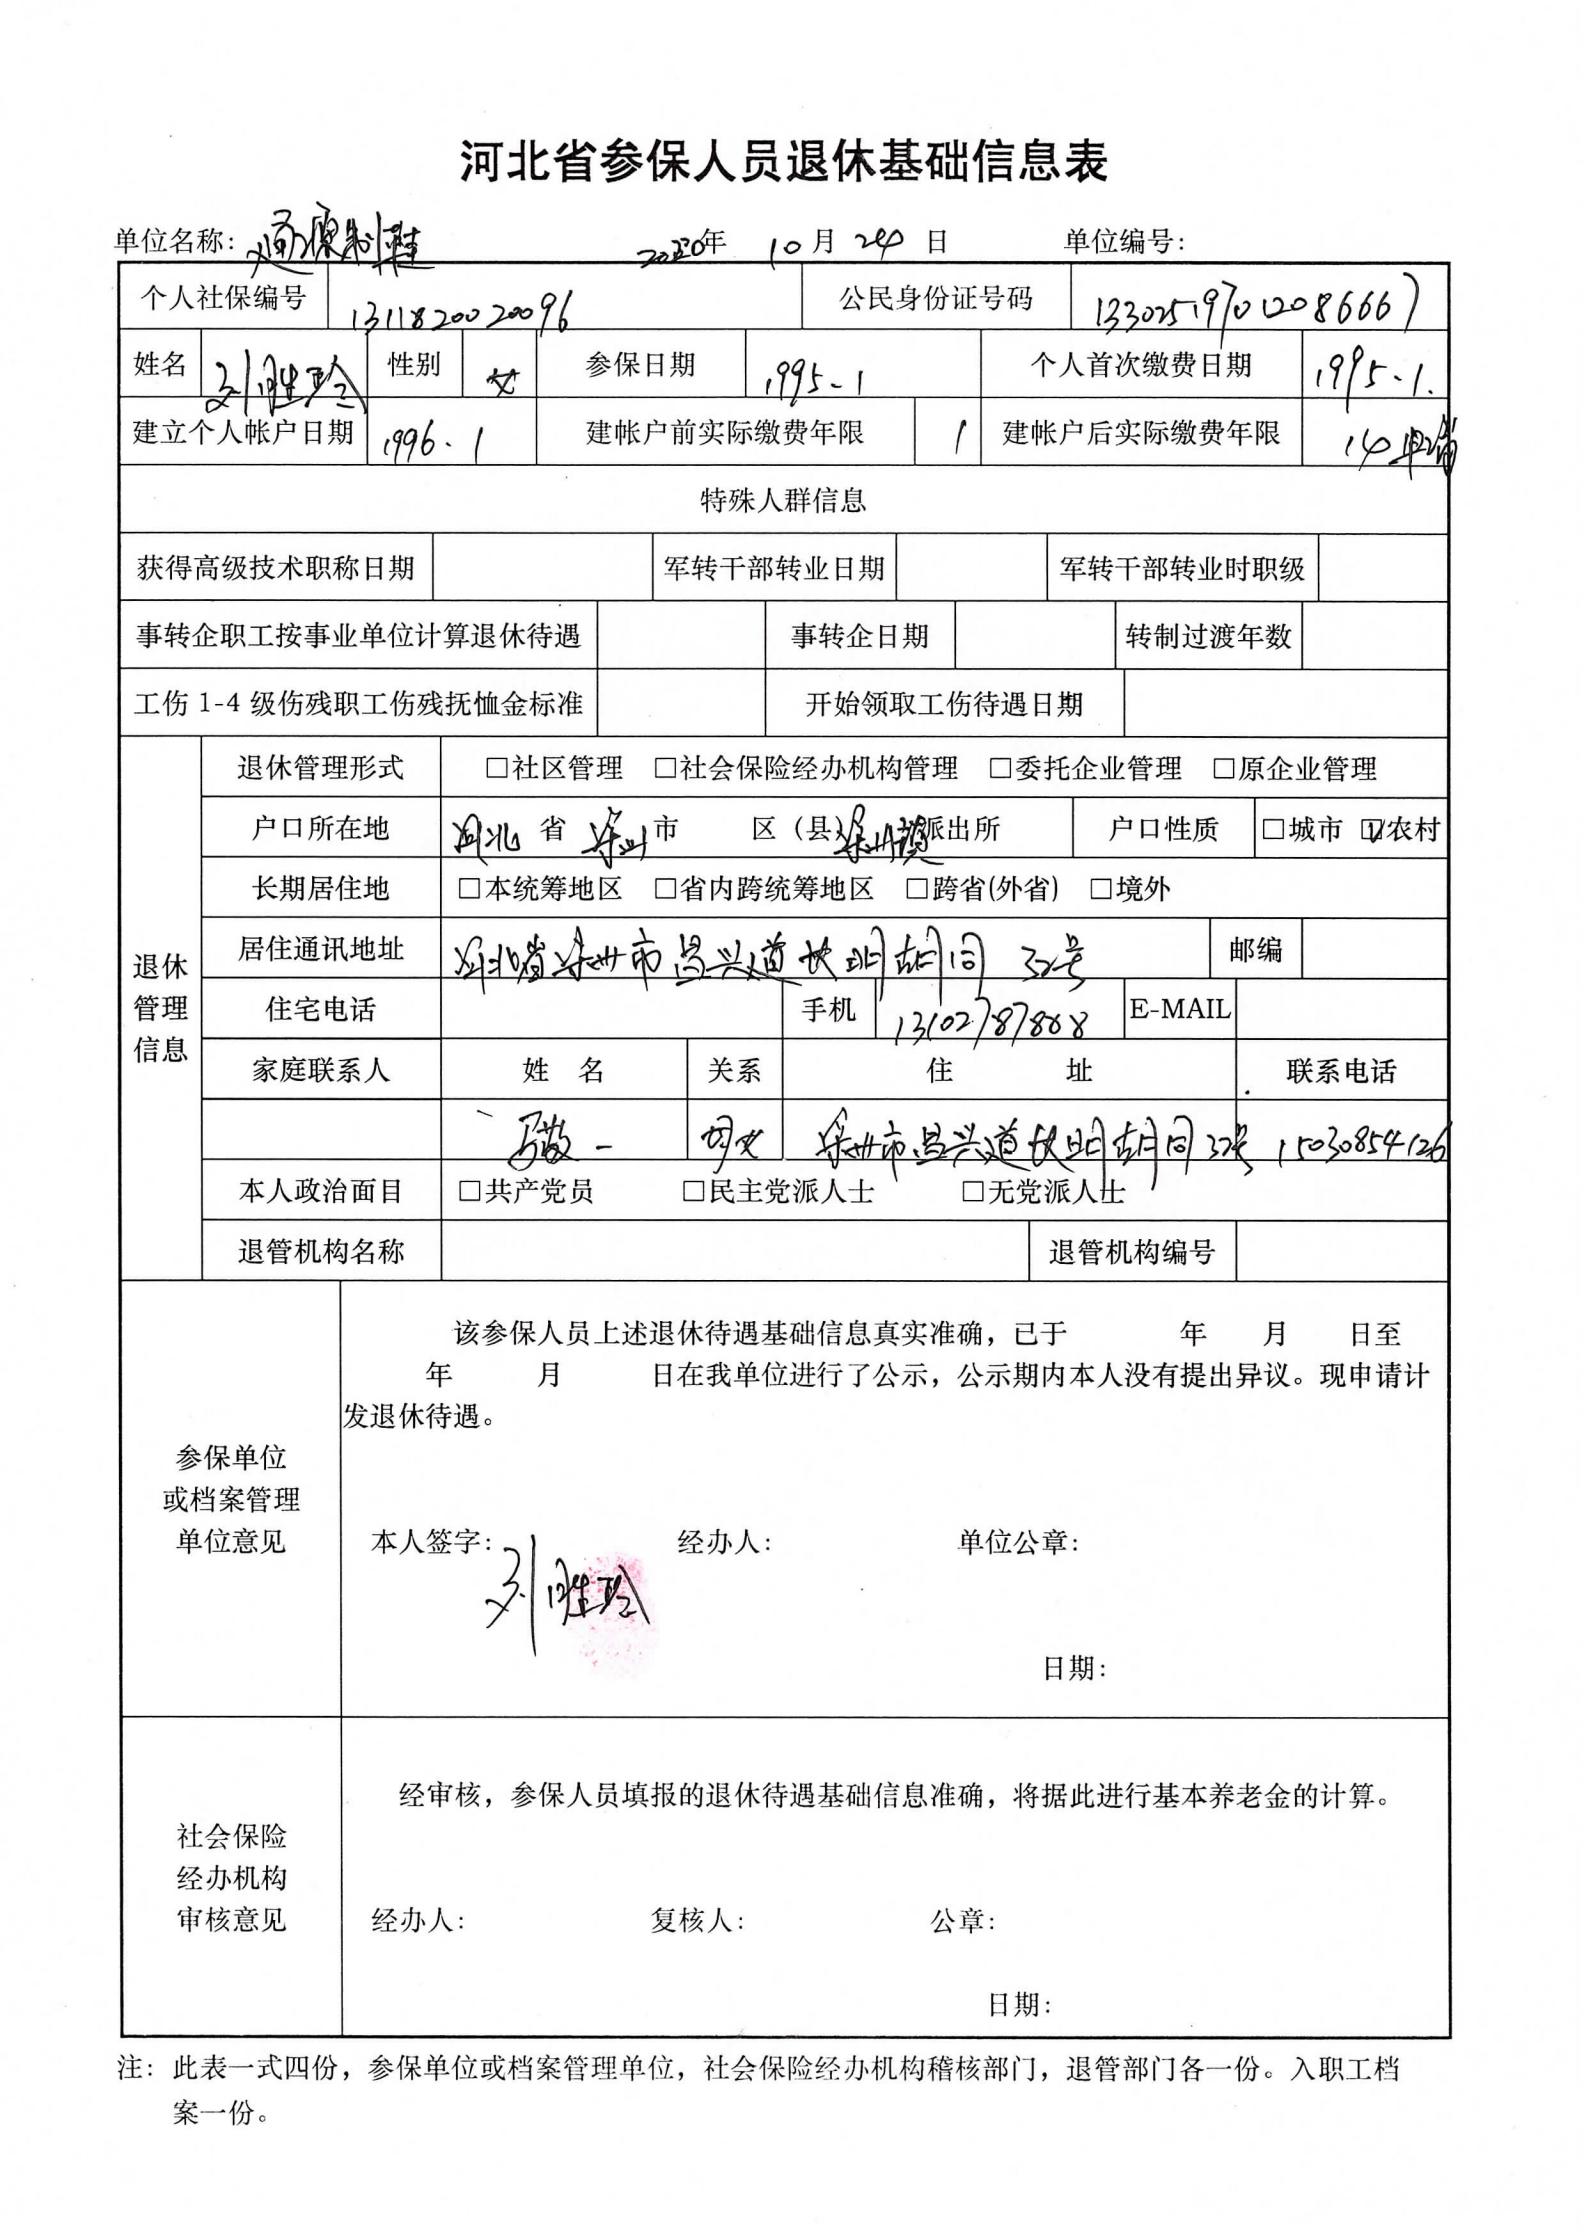 河北省参保人员退休基础信息表
单位名称: 通源制鞋 2020年 10月 24日 单位编号:
个人社保编号 1311820020096 公民身份证号码 133025197012086667
姓名 刘胜玲 性别 女 参保日期 1995-1 个人首次缴费日期 1995.1.
建立个人帐户日期 1996.1 建帐户前实际缴费年限 1 建帐户后实际缴费年限 14
特殊人群信息
获得高级技术职称日期 军转干部转业日期 军转干部转业时职级
事转企职工按事业单位计算退休待遇 事转企日期 转制过渡年数
工伤1-4级伤残职工伤残抚恤金标准 开始领取工伤待遇日期
退休管理信息
退休管理形式 □社区管理 □社会保险经办机构管理 □委托企业管理 □原企业管理
户口所在地 河北 省 深州 市 区(县) 深州镇 派出所 户口性质 □城市 ☑农村
长期居住地 □本统筹地区 □省内跨统筹地区 □跨省(外省) □境外
居住通讯地址 河北省深州市昌兴道长明胡同 32号 邮编
住宅电话 手机 13102787888 E-MAIL
家庭联系人 姓 名 关系 住 址 联系电话
马薇一 母女 深州市昌兴道长明胡同32号 15030854126
本人政治面目 □共产党员 □民主党派人士 □无党派人士
退管机构名称 退管机构编号
参保单位
或档案管理
单位意见
该参保人员上述退休待遇基础信息真实准确，已于 年 月 日至
年 月 日在我单位进行了公示，公示期内本人没有提出异议。现申请计
发退休待遇。
本人签字: 刘胜玲 经办人: 单位公章:
日期:
社会保险
经办机构
审核意见
经审核，参保人员填报的退休待遇基础信息准确，将据此进行基本养老金的计算。
经办人: 复核人: 公章:
日期:
注: 此表一式四份，参保单位或档案管理单位，社会保险经办机构稽核部门，退管部门各一份。入职工档
案一份。